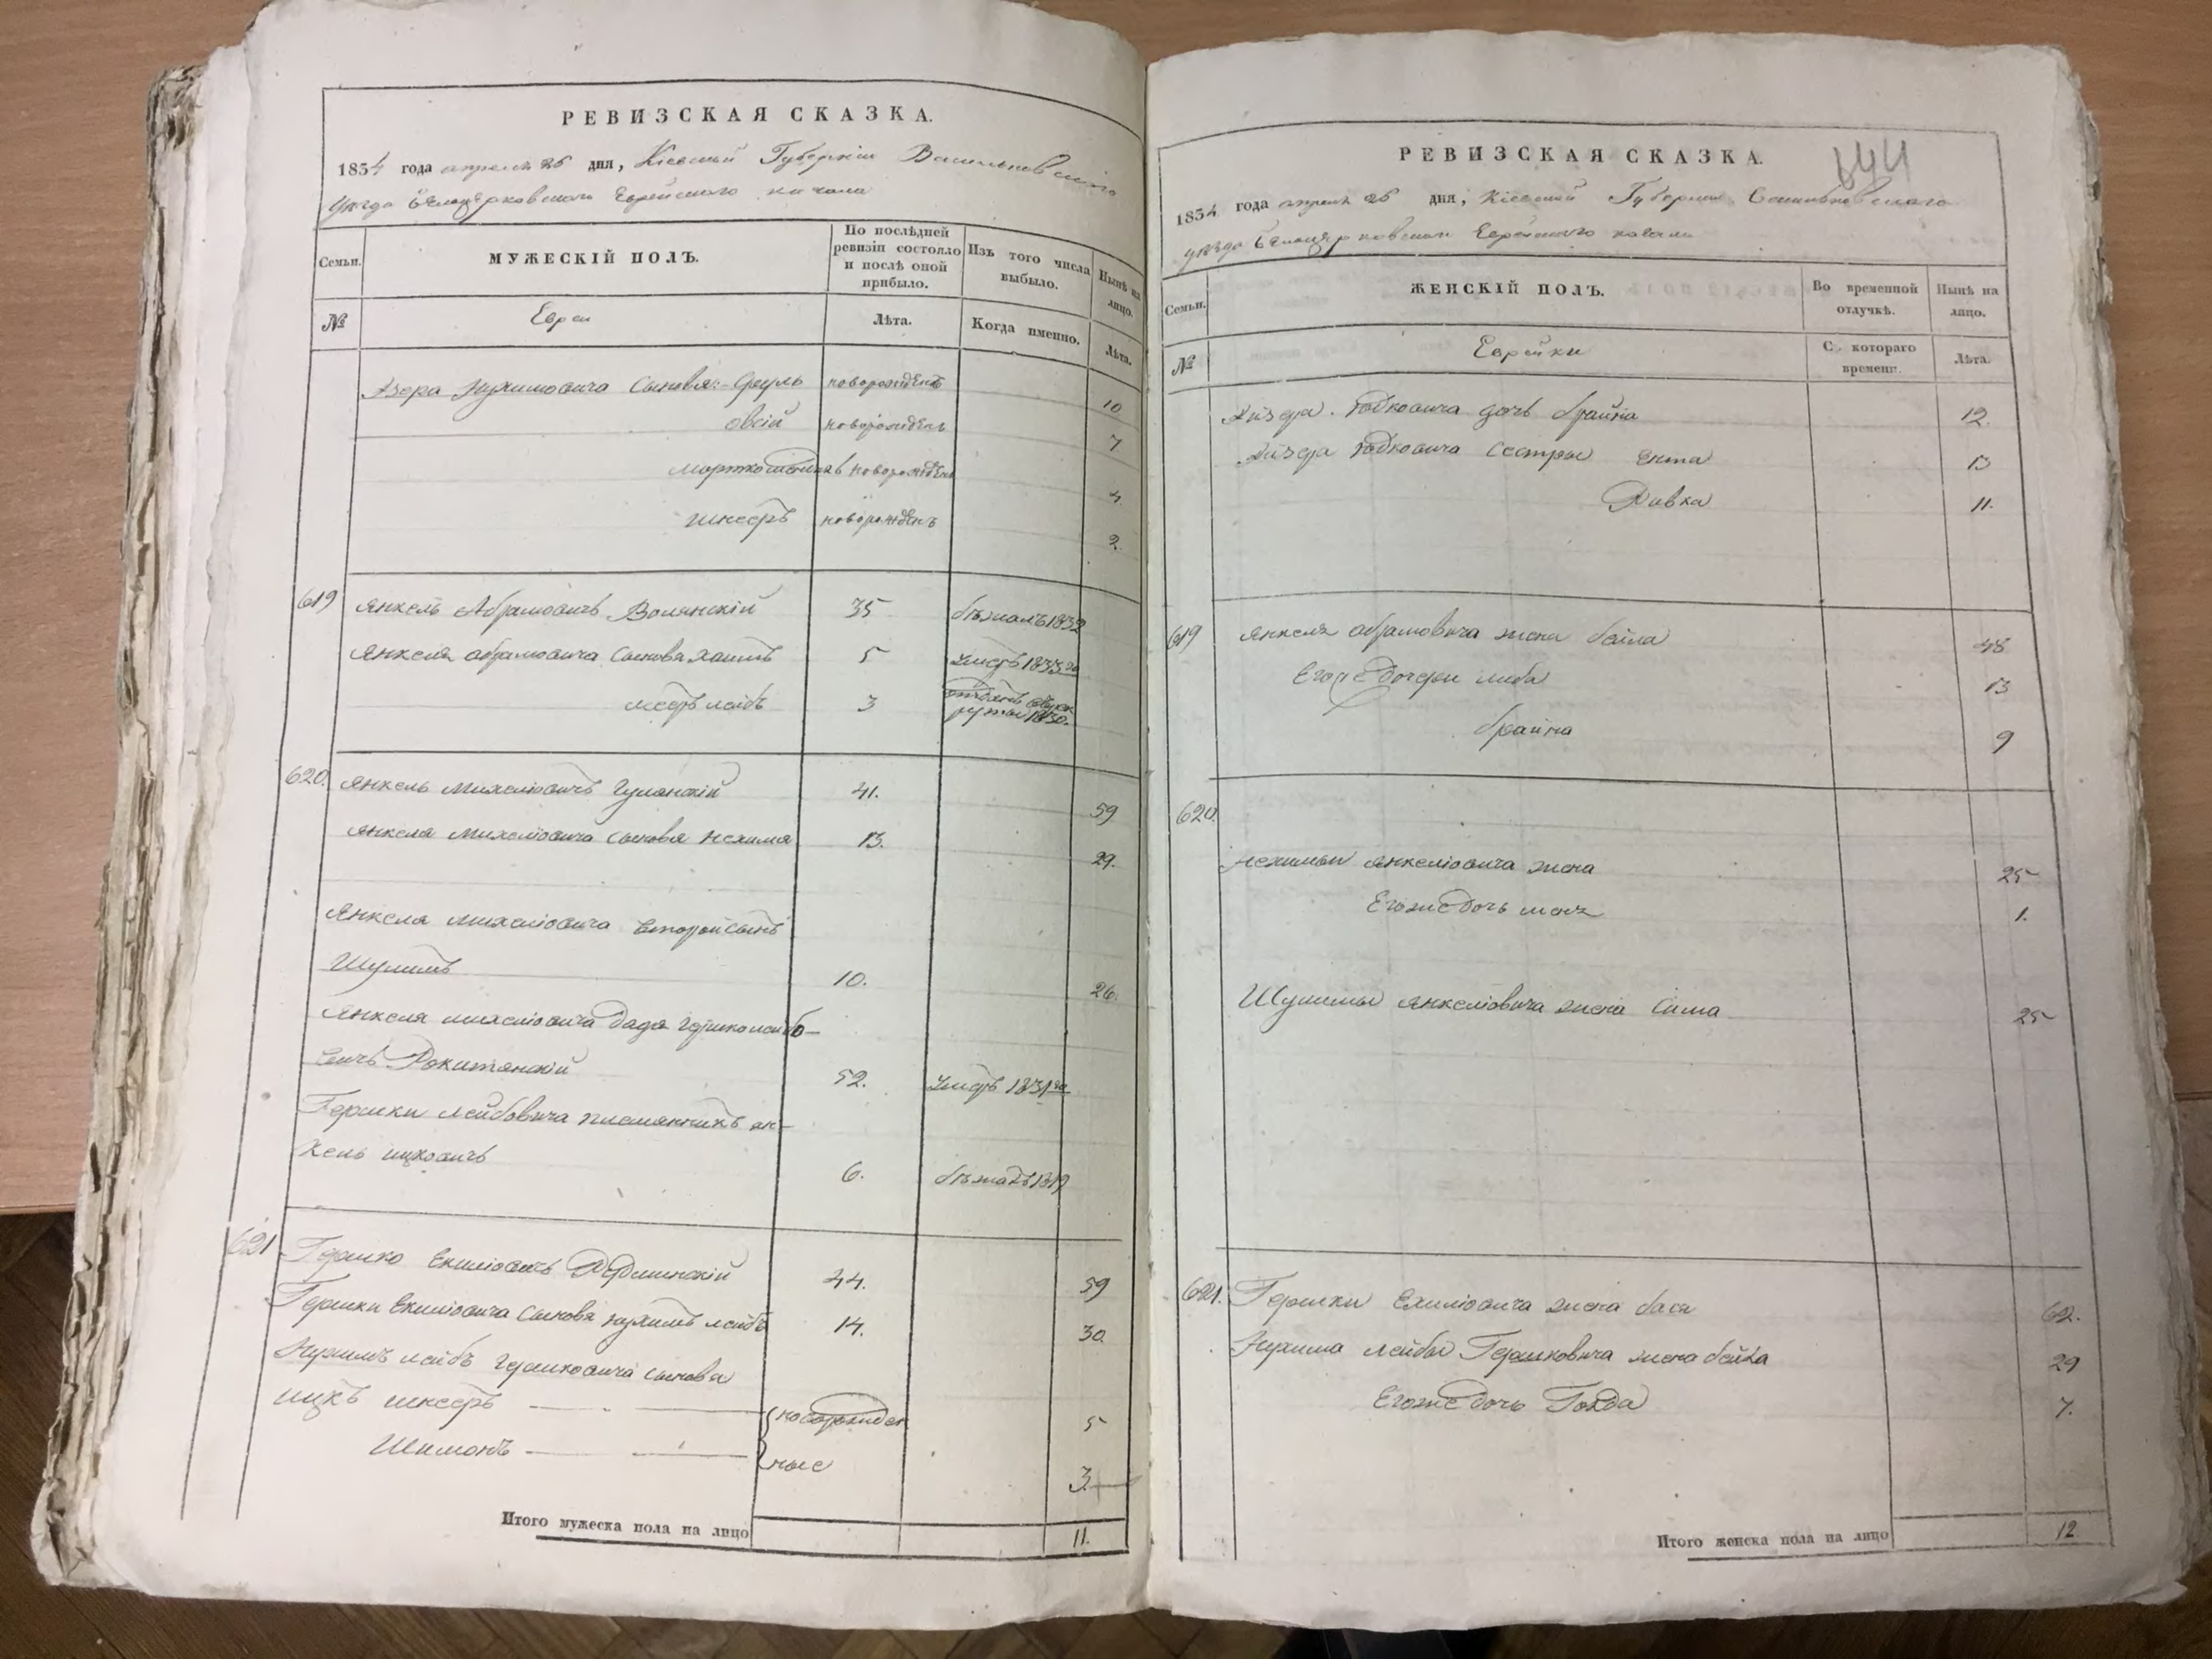 РЕВИЗСКАЯ СКАЗКА.
1834 года апреля 25 дня, Кіевской Губерніи Васильковскаго
уѣзда Бѣлоцерковскаго Еврейскаго кагала
Семьи.
МУЖЕСКІЙ ПОЛЪ.
По послѣдней ревизіи состояло и послѣ оной прибыло.
Изъ того числа выбыло.
Нынѣ на лицо.
№
Евреи
Лѣта.
Когда именно.
Лѣта.
Нухимовича сыновья: Сруль новорожденъ 10
Овсій новорожденъ 7
новорожденъ 4
новорожденъ 2.
619 Янкель Абрамовичъ Волянскій 35 бѣжалъ 1832
Янкеля Абрамовича сыновья Хаимъ 5 умеръ 1833го
лейбъ 3
620. Янкель Михеліовичъ Гулянскій 41. 59
Янкеля Михеліовича сыновья Нехима 13. 29.
Янкеля Михеліовича второй сынъ
Шулимъ 10. 26.
Янкеля Михеліовича дядя Гершко Лейбо-
вичъ Рокитянскій 52. умеръ 1831го
Гершки Лейбовича племянникъ Ян-
кель Ицковичъ 6. бѣжалъ 1819
621 Гершко 44. 59
Гершки сыновья Нухимъ Лейбъ 14. 30.
Нухимъ Лейбъ Гершковича сыновья
Ицкъ {новорожден 5
Шимонъ {ные 3.
Итого мужеска пола на лицо 11.
РЕВИЗСКАЯ СКАЗКА.
644
1834 года апреля 25 дня, Кіевской Губерніи Васильковскаго
уѣзда Бѣлоцерковскаго Еврейскаго кагала
Семьи.
ЖЕНСКІЙ ПОЛЪ.
Во временной отлучкѣ.
Нынѣ на лицо.
№
Еврейки
Съ котораго времени.
Лѣта.
дочь Брайна 12.
сестры Ента 13
Ривка 11.
619 Янкеля Абрамовича жена Бейла 48
Его же дочери Либа 13
Брайна 9
620.
Нехимы Янкеліовича жена 25
Его же дочь 1.
Шулимы Янкеліовича жена Сима 25
621. Гершки жена Бася 62.
Нухима Лейбы Гершковича жена Бейла 29
Его же дочь Голда 7.
Итого женска пола на лицо 12.